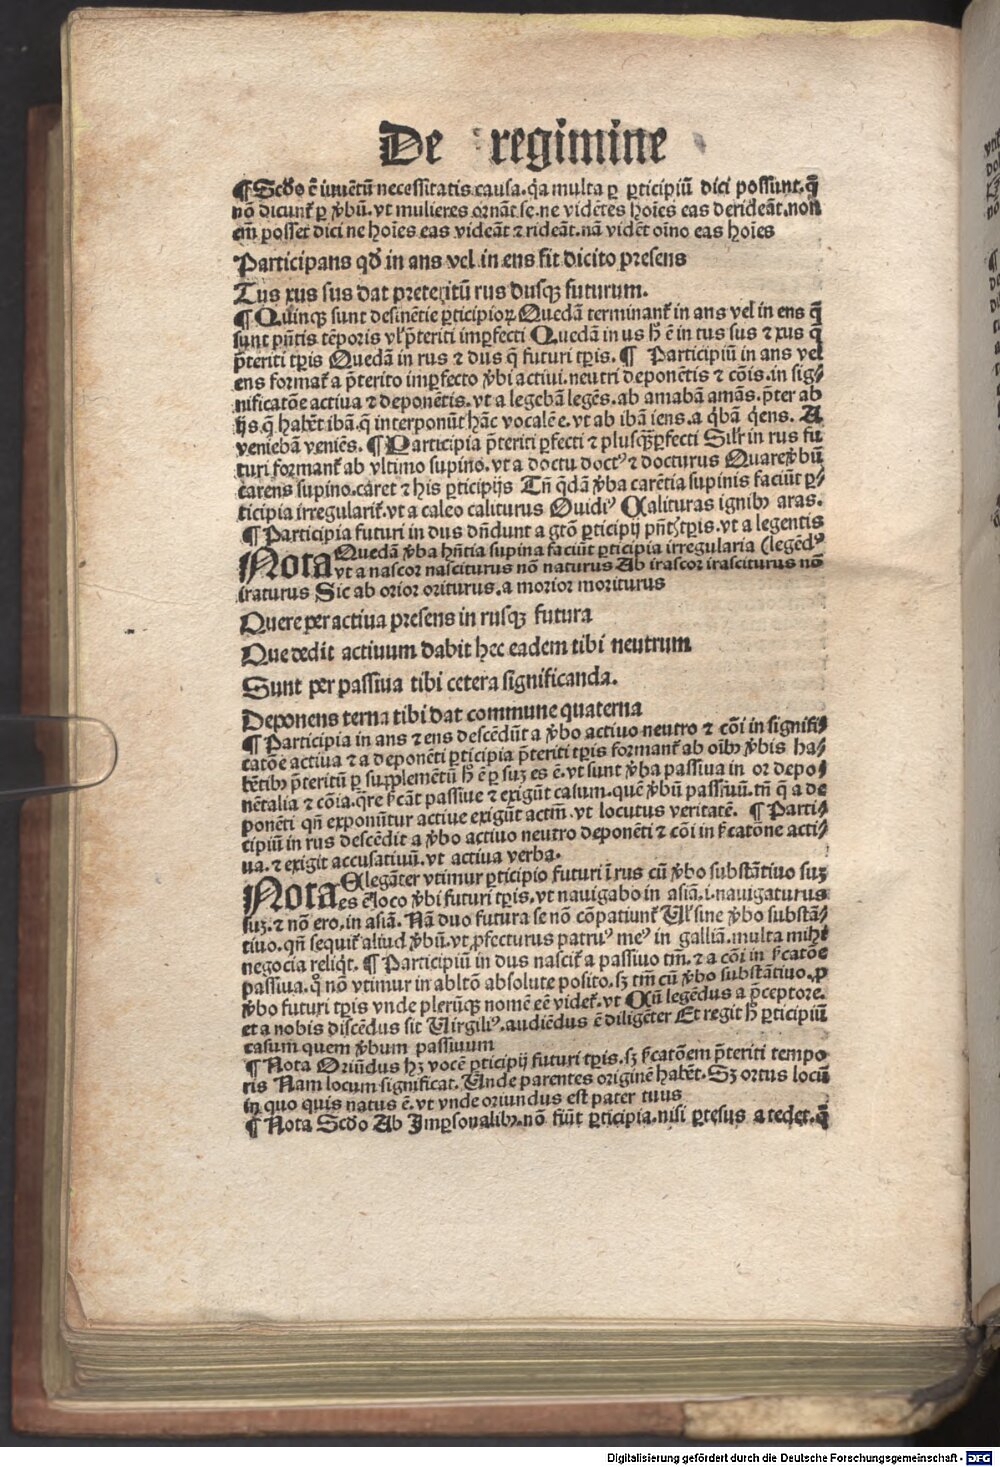 De regimine
¶ Scdo ē inuētū necessitatis causa. q̄a multa ꝑ ꝑticipiū dici possunt. q̄
nō dicunt᷑ ꝑ v̄bū. vt mulieres ornāt se. ne vidētes hoīes eas derideāt. non
em̄ posset dici ne hoīes eas videāt ⁊ rideāt. nā vidēt oīno eas hoīes
Participans qd̓ in ans vel in ens fit dicito presens
Tus xus sus dat preteritū rus dusqꝫ futurum.
¶ Quinqꝫ sunt desinētie ꝑticipioꝝ Quedā terminant᷑ in ans vel in ens q̄
sunt pn̄tis tēporis vl̓ p̄teriti imꝑfecti Quedā in us hͦ ē in tus sus ⁊ xus q̄
p̄teriti tꝑis Quedā in rus ⁊ dus q̄ futuri tꝑis. ¶ Participiū in ans vel
ens format᷑ a p̄terito imꝑfecto v̄bi actiui. neutri deponētis ⁊ cōis. in sig⸗
nificatōe actiua ⁊ deponētis. vt a legebā legēs. ab amabā amās. p̄ter ab
ijs. q̄ habēt ibā. q̄ interponūt hāc vocalē e. vt ab ibā iens. a q̇bā q̇ens. A
veniebā veniēs. ¶ Participia p̄teriti ꝑfecti ⁊ plusqꝫꝑfecti Silr̓ in rus fu
turi formant᷑ ab vltimo supino. vt a doctu doctꝰ ⁊ docturus Quare v̄bū
carens supino. caret ⁊ his ꝑticipijs Tn̄ q̄dā v̄ba carētia supinis faciūt ꝑ⸗
ticipia irregularit᷑. vt a caleo caliturus Ouidiꝰ Calituras ignibꝫ aras.
¶ Participia futuri in dus dn̄dunt a gtō ꝑticipij pn̄tꝭ tꝑis. vt a legentis
Nota Quedā v̄ba hn̄tia supina faciūt ꝑticipia irregularia (legēdꝰ
vt a nascor nasciturus nō naturus Ab irascor irasciturus nō
iraturus Sic ab orior oriturus. a morior moriturus
Quere per actiua presens in rusqꝫ futura
Que dedit actiuum dabit hec eadem tibi neutrum
Sunt per passiua tibi cetera significanda.
Deponens terna tibi dat commune quaterna
¶ Participia in ans ⁊ ens descēdūt a v̄bo actiuo neutro ⁊ cōi in signifi⸗
catōe actiua ⁊ a deponēti ꝑticipia p̄teriti tꝑis formant᷑ ab oībꝫ v̄bis ha⸗
bētibꝫ p̄teritū ꝑ supplemētū hͦ ē ꝑ suꝫ es ē. vt sunt v̄ba passiua in or depo⸗
nētalia ⁊ cōia. q̄re sc̄ant passiue ⁊ exigūt casum. quē v̄bū passiuū. tn̄ q̄ a de
ponēti qn̄ exponūtur actiue exigūt actm̄. vt locutus veritatē. ¶ Parti⸗
cipiū in rus descēdit a v̄bo actiuo neutro deponēti ⁊ cōi in sc̄atōne acti⸗
ua. ⁊ exigit accusatiuū. vt actiua verba.
Nota Elegāter vtimur ꝑticipio futuri ī rus cū v̄bo substātiuo suꝫ
es ē loco v̄bi futuri tꝑis. vt nauigabo in asiā. i. nauigaturus
suꝫ. ⁊ nō ero. in asiā. Nā duo futura se nō cōpatiunt᷑ Vl̓ sine v̄bo substā⸗
tiuo. qn̄ sequit᷑ aliud v̄bū. vt ꝓfecturus patruꝰ meꝰ in galliā. multa mihi
negocia reliq̇t. ¶ Participiū in dus nascit᷑ a passiuo tm̄. ⁊ a cōi in sc̄atōe
passiua. qͦ nō vtimur in abltō absolute posito. sꝫ tm̄ cū v̄bo substātiuo. ꝓ
v̄bo futuri tꝑis vnde plerūqꝫ nomē eē videt᷑. vt Cū legēdus a p̄ceptore.
et a nobis discēdus sit Virgiliꝰ. audiēdus ē diligēter Et regit hͦ ꝑticipiū
casum quem v̄bum passiuum
¶ Nota Oriūdus hꝫ vocē ꝑticipij futuri tꝑis. sꝫ sc̄atōem p̄teriti tempo
ris Nam locum significat. Unde parentes originē habēt. Sꝫ ortus locū
in quo quis natus ē. vt vnde oriundus est pater tuus
¶ Nota Scdo Ab Imꝑsonalibꝫ. nō fiūt ꝑticipia. nisi ꝑtesus a tedet. q̄
Digitalisierung gefördert durch die Deutsche Forschungsgemeinschaft - DFG